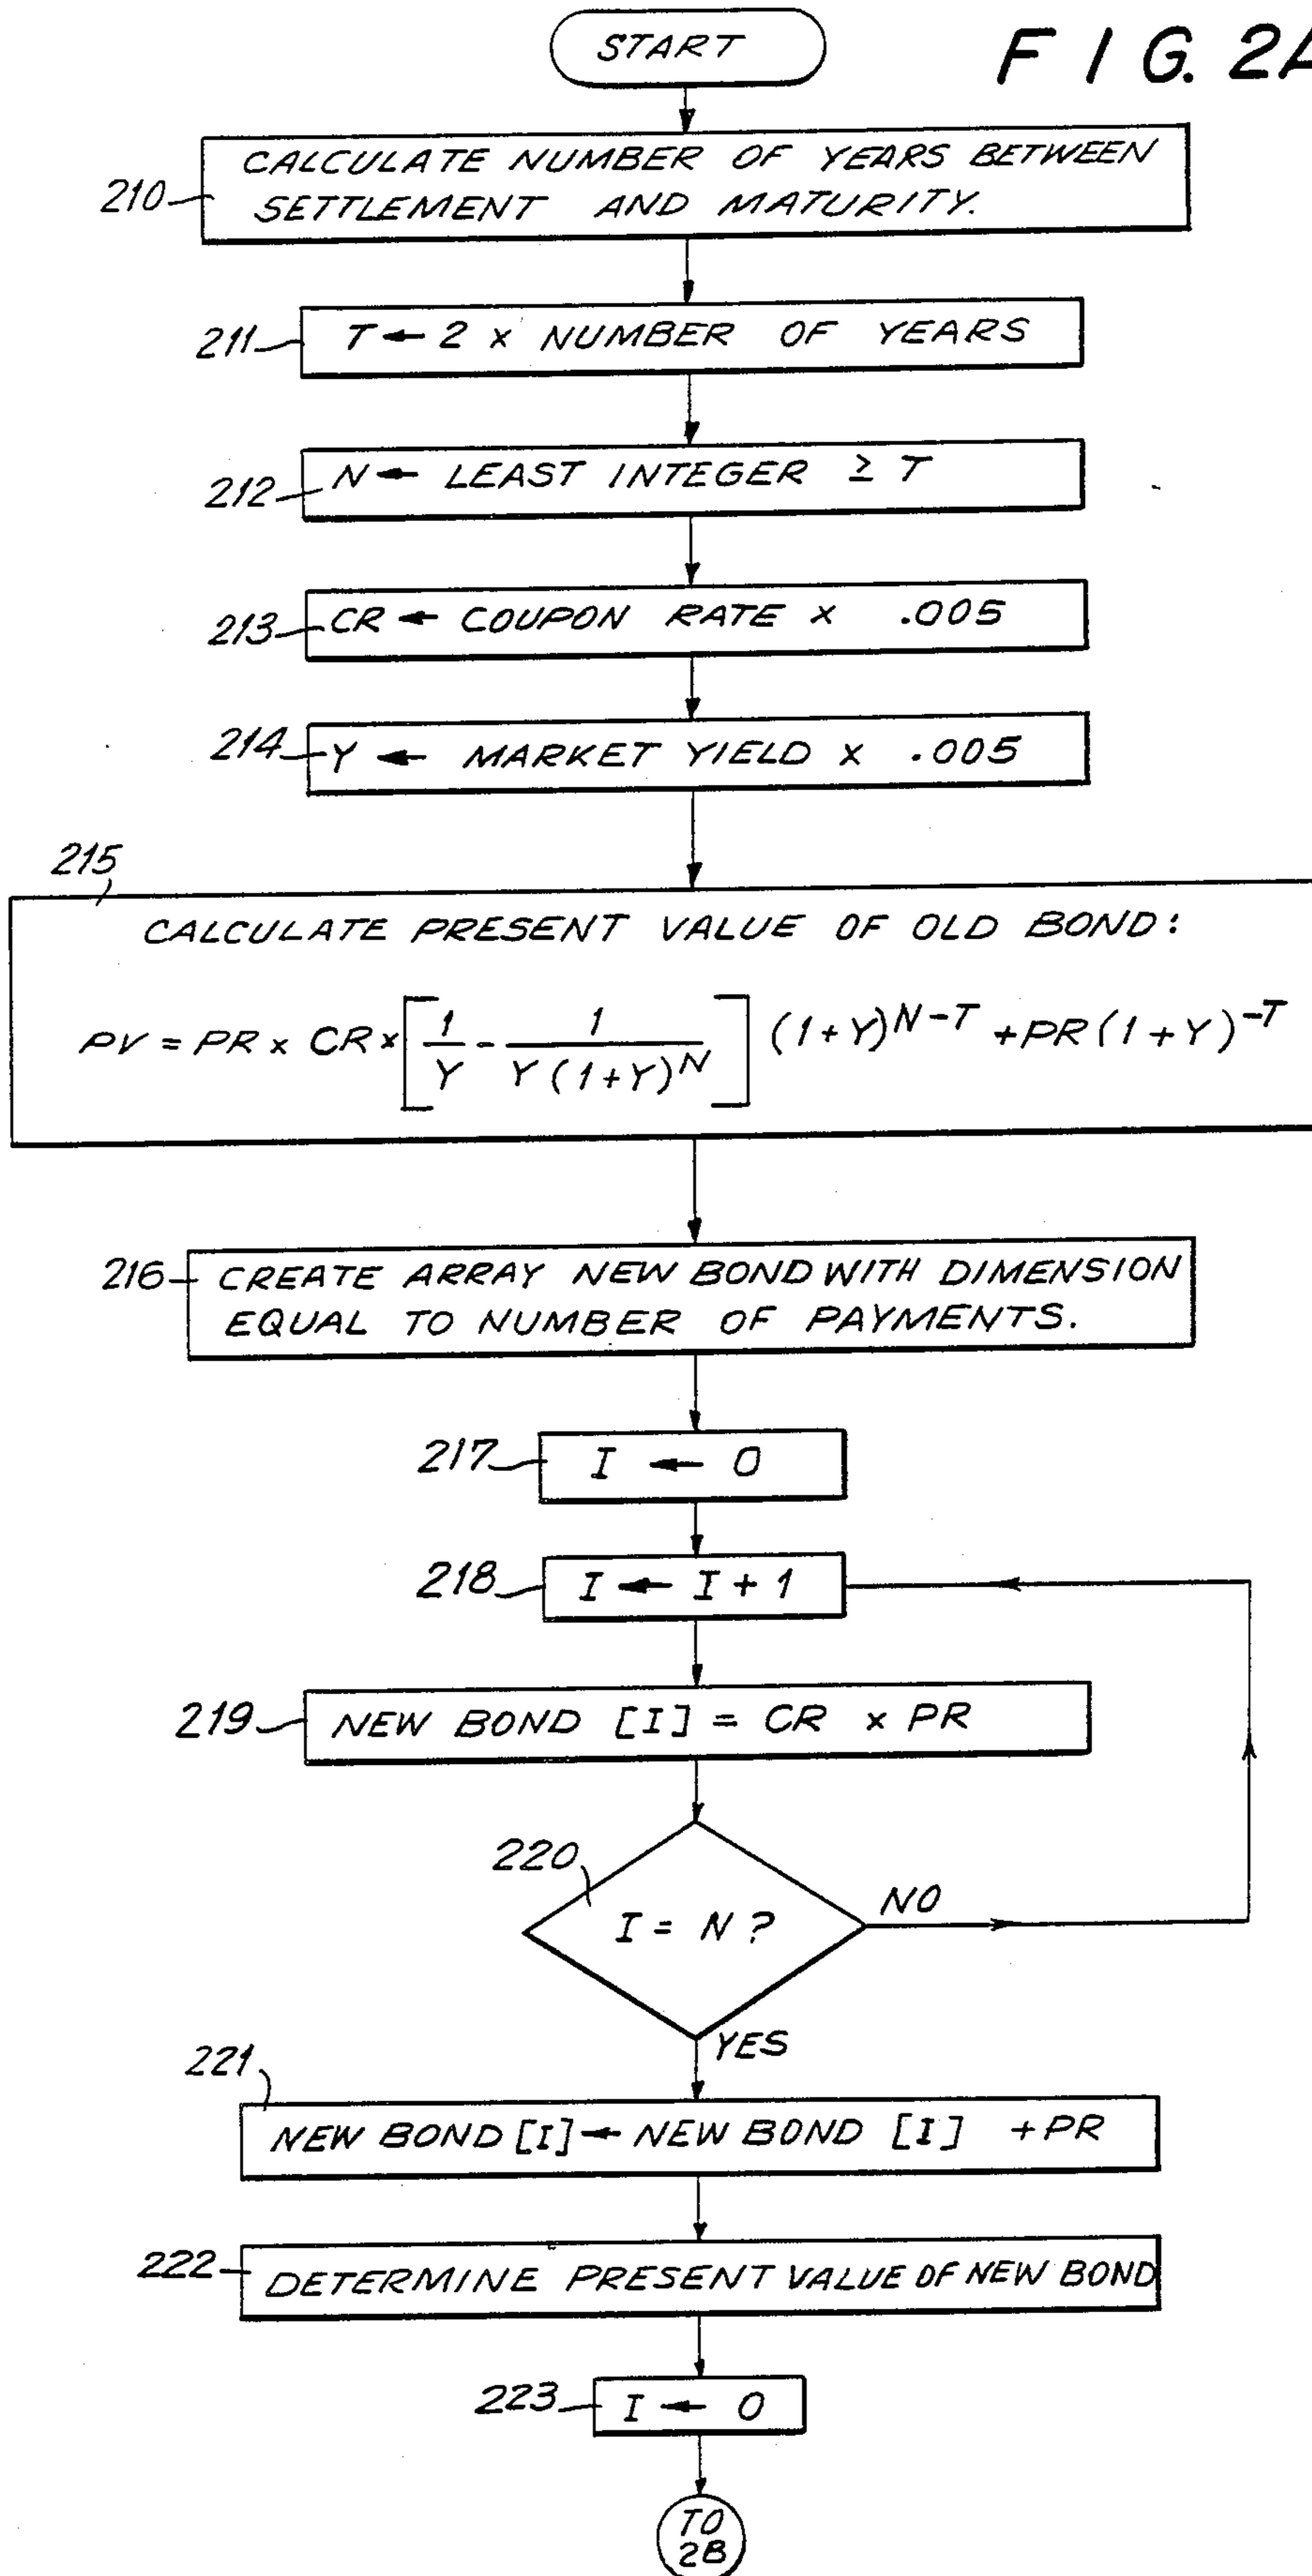 START
FIG. 2A
210
CALCULATE NUMBER OF YEARS BETWEEN
SETTLEMENT AND MATURITY.
211
T ← 2 x NUMBER OF YEARS
212
N ← LEAST INTEGER ≥ T
213
CR ← COUPON RATE x .005
214
Y ← MARKET YIELD x .005
215
CALCULATE PRESENT VALUE OF OLD BOND:
PV = PR x CR x [1/Y - 1/Y(1+Y)^N] (1+Y)^N-T + PR(1+Y)^-T
216
CREATE ARRAY NEW BOND WITH DIMENSION
EQUAL TO NUMBER OF PAYMENTS.
217
I ← 0
218
I ← I + 1
219
NEW BOND [I] = CR x PR
220
I = N ?
NO
YES
221
NEW BOND [I] ← NEW BOND [I] + PR
222
DETERMINE PRESENT VALUE OF NEW BOND
223
I ← 0
TO
2B